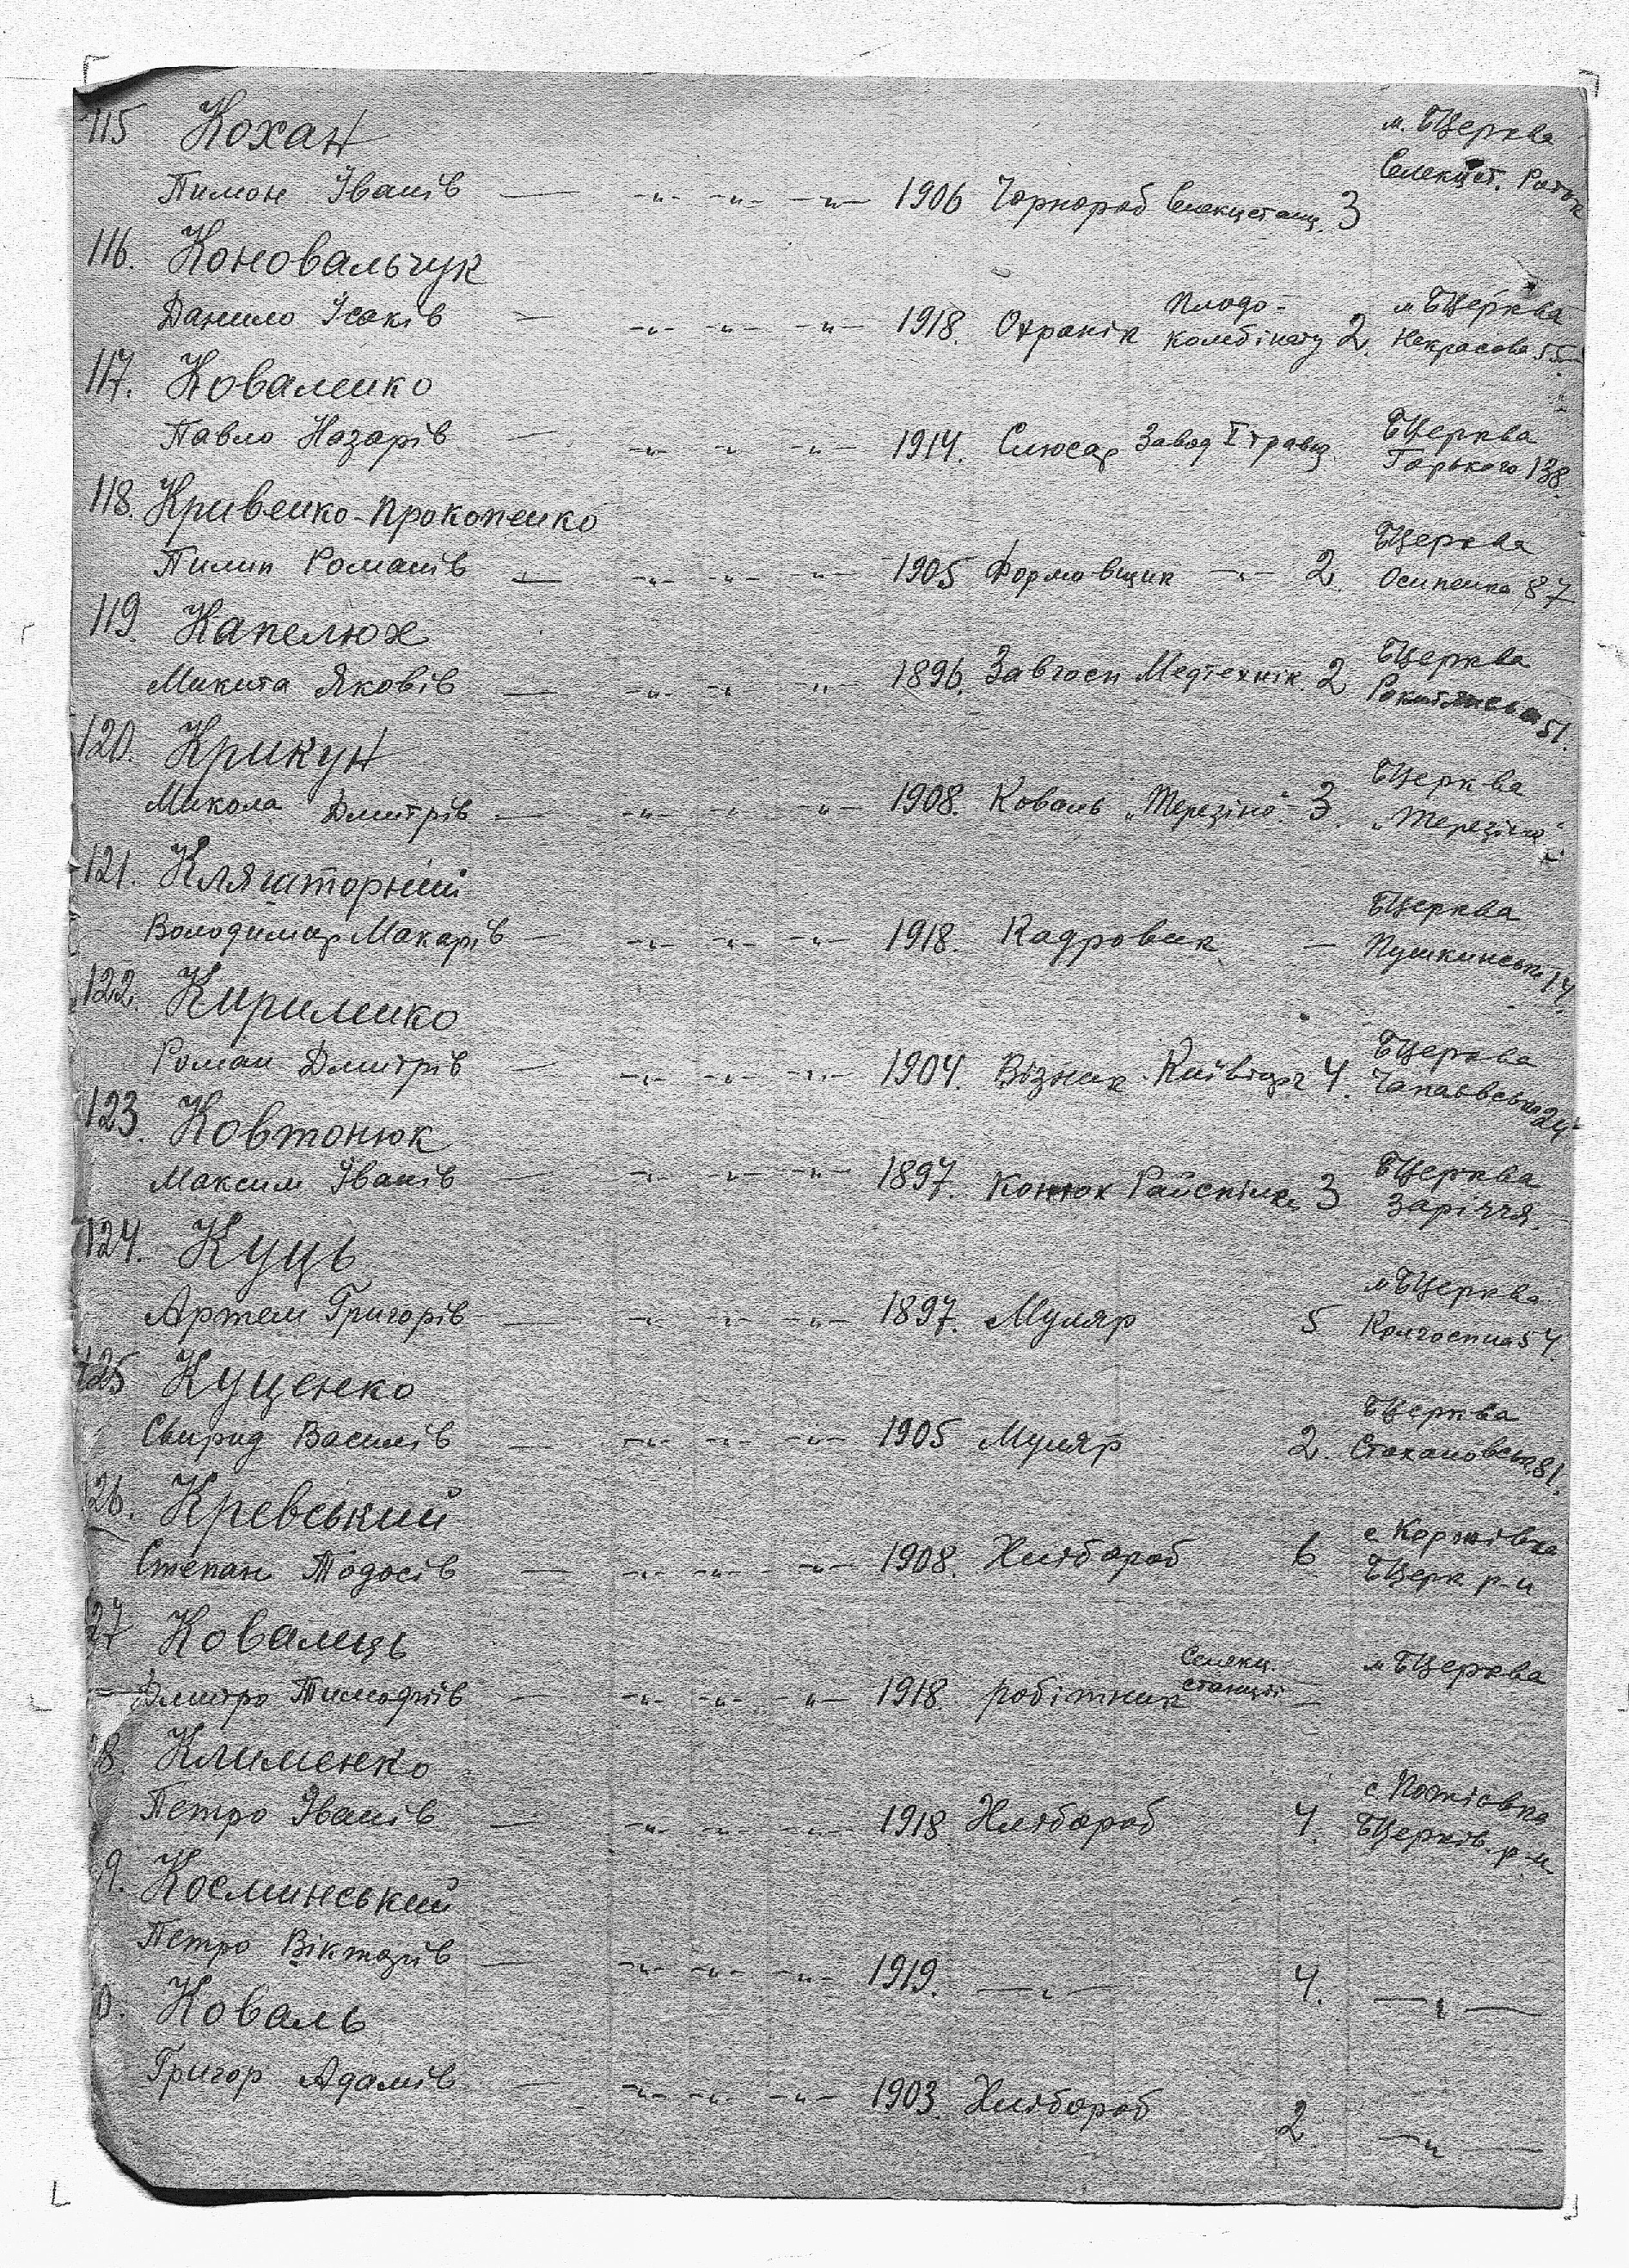 115 Кохан м. БЦерква
Пимон Іванів — -"- -"- -"- 1906 Чорнороб Селекцстанц. 3 Селекцст. Роток
116. Коновальчук
Данило Ісаків — -"- -"- -"- 1918. Охранік Плодо-комбінату 2. м БЦерква Некрасова 55
117. Коваленко
Павло Назарів — -"- -"- -"- 1914. Слюсар Завод І травня БЦерква Горького 138.
118. Кривенко-Прокопенко
Пилип Романів — -"- -"- -"- 1905 Формовщик -"- 2. БЦерква Осипенка 87
119. Капелюх
Микита Яковів — -"- -"- -"- 1896. Завгосп Медтехнік. 2 БЦерква Рокитянська 51.
120. Крикун
Микола Дмитрів — -"- -"- -"- 1908. Коваль „Терезіно" - 3. БЦерква „Терезіно"
121. Кляшторний
Володимир Макарів — -"- -"- -"- 1918. Кадровик — БЦерква Пушкинська 14.
122. Кириленко
Роман Дмитрів — -"- -"- -"- 1904. Візник 4. БЦерква Чапаєвська 24
123. Ковтонюк
Максим Іванів — -"- -"- -"- 1897. Конюх Райспілка 3 БЦерква Заріччя
124. Куць
Артем Григорів — -"- -"- -"- 1897. Муляр 5 м БЦерква Колгоспна 54.
125 Куценко
Свирид Василів — -"- -"- -"- 1905 Муляр 2. БЦерква Стахановська 81.
126. Кревський
Степан Тодосів — -"- -"- -"- 1908. Хлібороб 6 с Коржівка БЦерк р-н
27 Ковалець
Дмитро Тимофіїв — -"- -"- -"- 1918. робітник Селекц. станції — м БЦерква
8. Клименко
Петро Іванів — -"- -"- -"- 1918 Хлібороб 4. с БЦерків. р-н
9. Косминський
Петро Вікторів — -"- -"- -"- 1919. —"— 4. —"—
0. Коваль
Григор Адамів — -"- -"- -"- 1903. Хлібороб 2. —"—